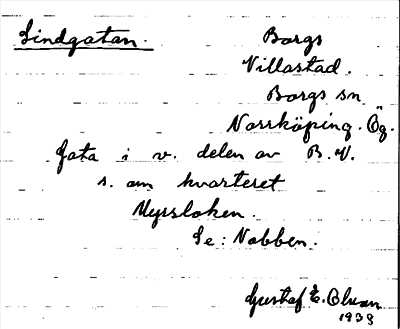 Lindgatan. Borgs
Villastad.
Borgs sn
Norrköping. Ög.
Gata i v. delen av B.V.
s. om kvarteret
Myrsloken.
Se: Nabben.
Gustaf E. Olsson
1938